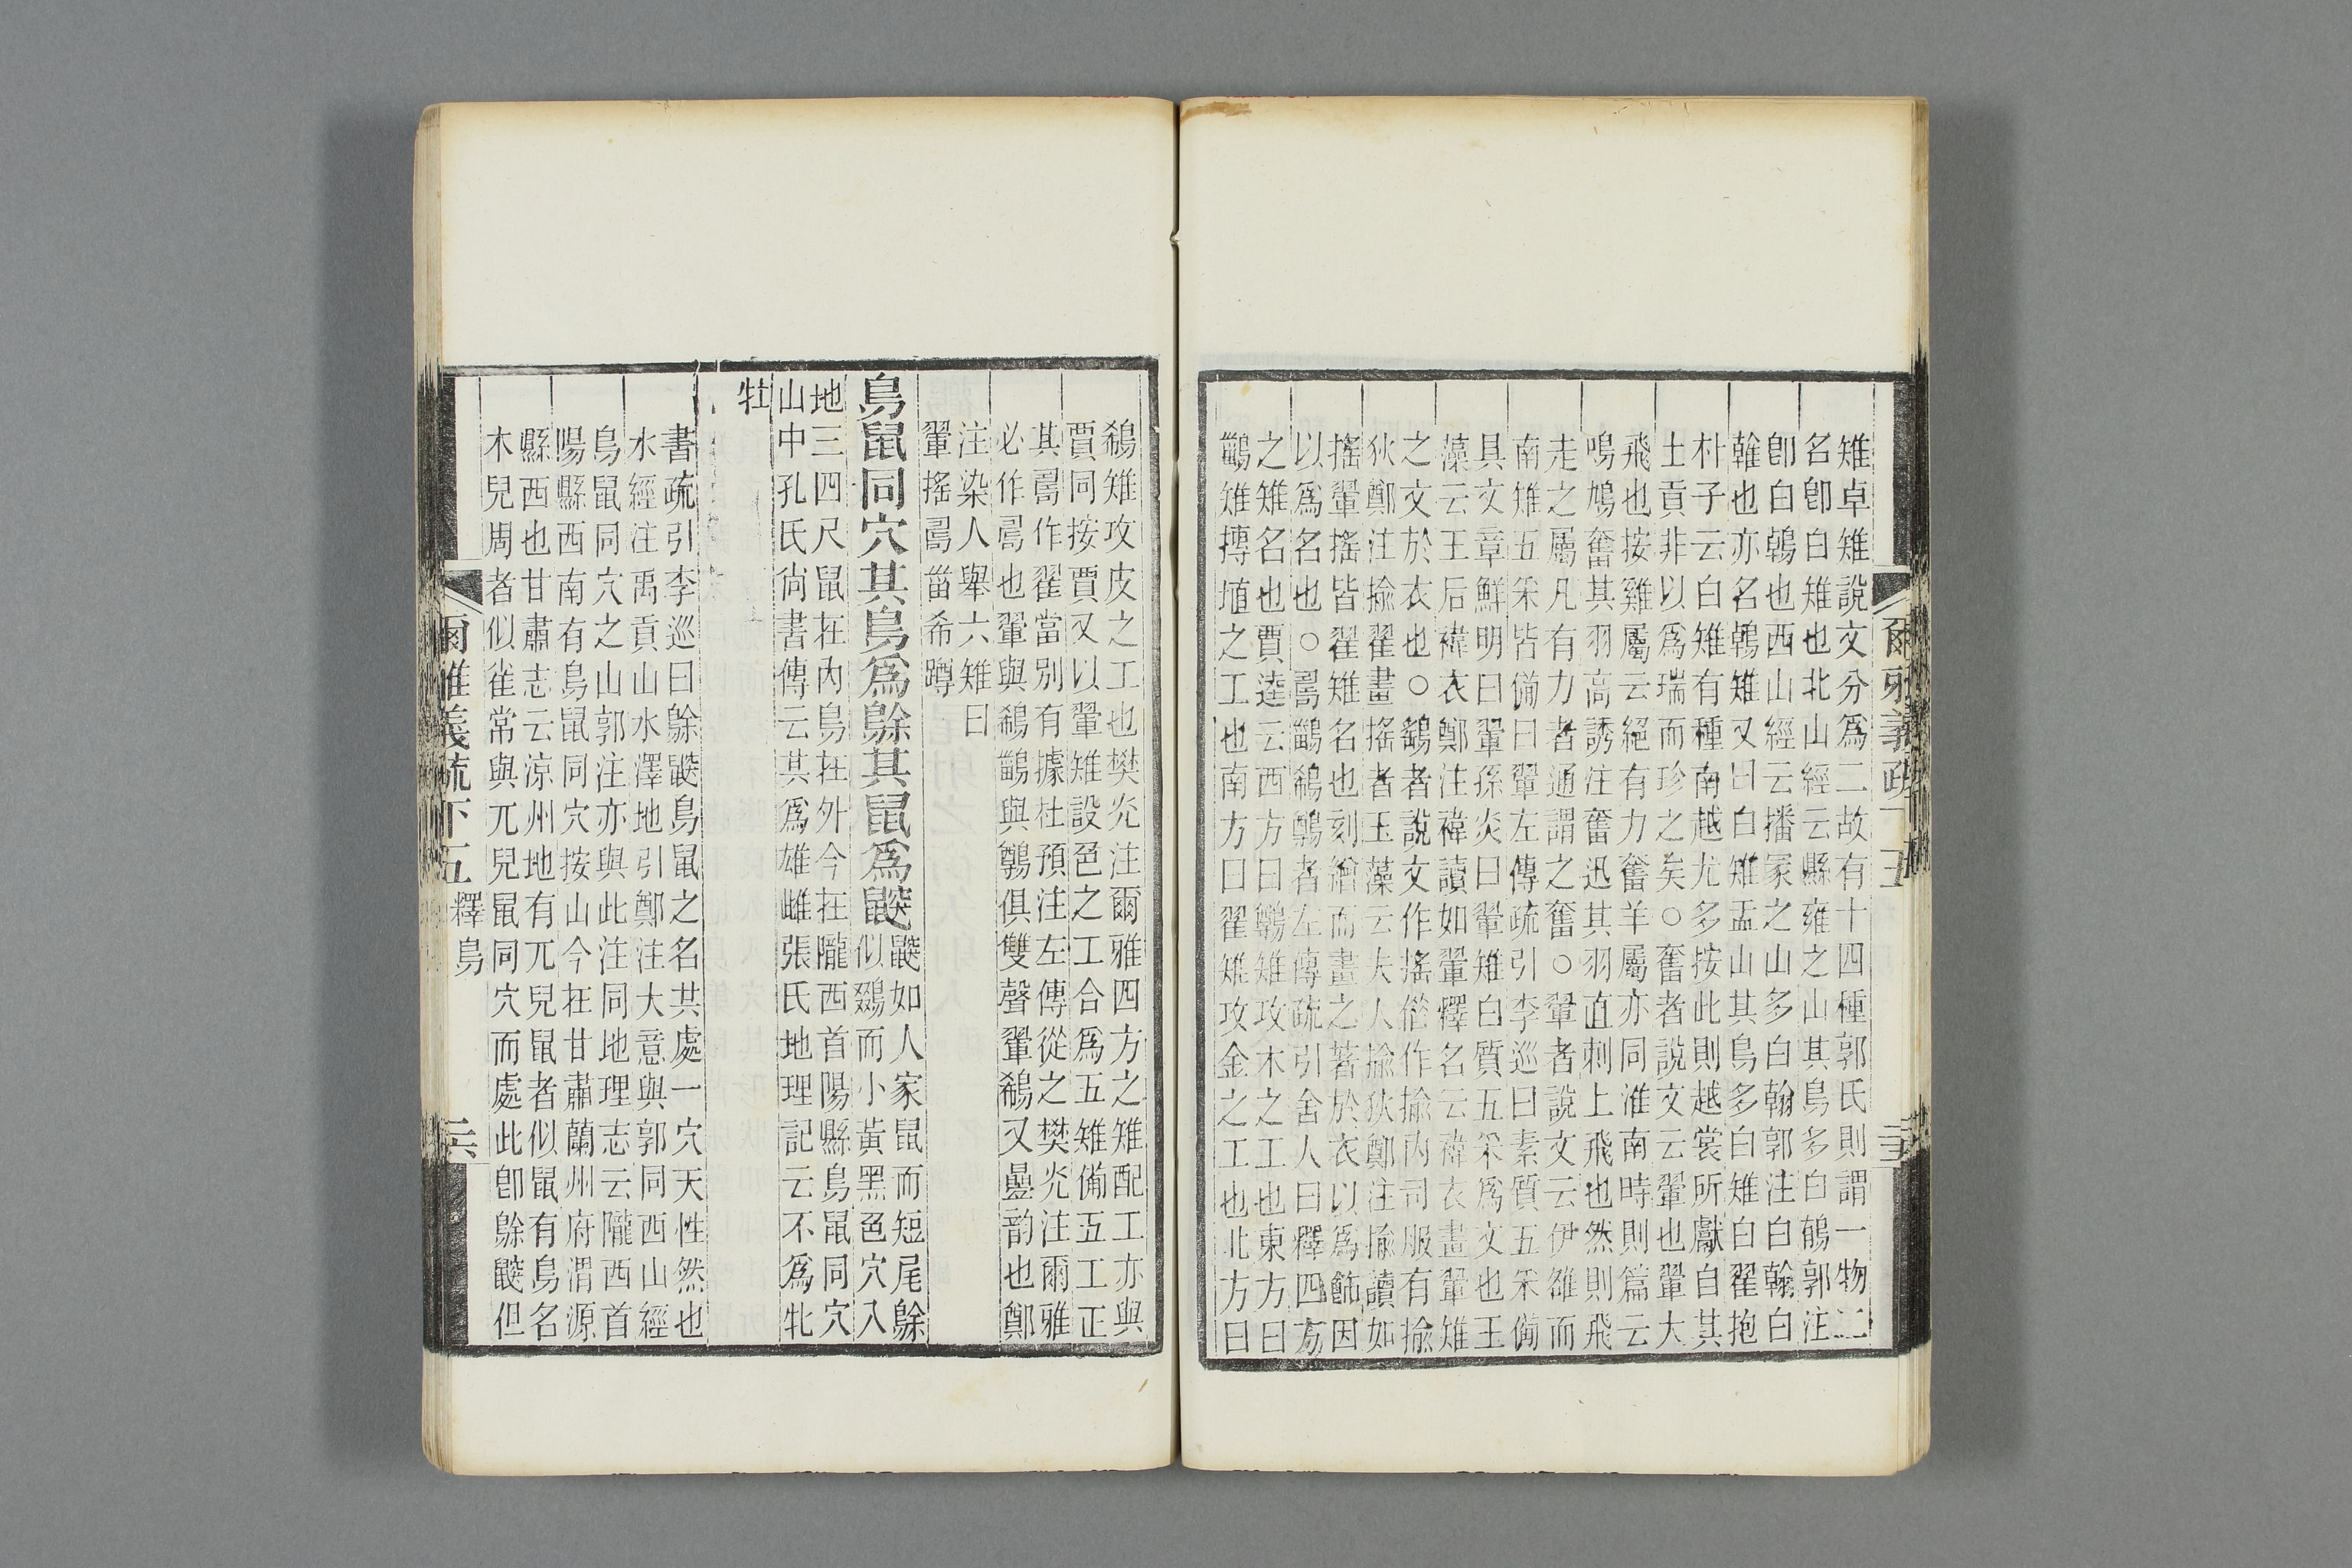 雉卓雉說文分爲二故有十四種郭氏則謂一物二
名卽白雉也北山經云縣雍之山其鳥多白鵫郭注
卽白鵫也西山經云播冢之山多白翰郭注白翰白
雗也亦名鵫雉又曰白雉盂山其鳥多白雉白翟抱
朴子云白雉有種南越尤多按此則越裳所獻自其
土貢非以爲瑞而珍之矣○奮者說文云翬也翬大
飛也按雞屬云絕有力奮羊屬亦同淮南時則篇云
鳴鳩奮其羽高誘注奮迅其羽直刺上飛也然則飛
走之屬凡有力者通謂之奮○翬者說文云伊雒而
南雉五采皆備曰翬左傳疏引李巡曰素質五采備
具文章鮮明曰翬孫炎曰翬雉白質五采爲文也玉
藻云王后褘衣鄭注褘讀如翬釋名云褘衣畫翬雉
之文於衣也○鷂者說文作搖傞作揄內司服有揄
狄鄭注揄翟畫搖者玉藻云夫人揄狄鄭注揄讀如
搖翬搖皆翟雉名也刻繒而畫之著於衣以爲飾因
以爲名也○鶅鷂鵗者左傳疏引舍人曰釋四方
之雉名也賈逵云西方曰鷷雉攻木之工也東方曰
鶅雉摶埴之工也南方曰翟雉攻金之工也北方曰
爾雅義疏下五
鵗雉攻皮之工也樊光注爾雅四方之雉配工亦與
賈同按賈又以翬雉設色之工合爲五雉備五工正
其作翟當別有據杜預注左傳從之樊光注爾雅
必作也翬與鵗鶅與鷷俱雙聲翬鵗又曡韵也鄭
注染人舉六雉曰
翬搖甾希蹲
鳥鼠同穴其鳥爲鵌其鼠爲鼵鼵如人家鼠而短尾鵌
似鵽而小黃黑色穴入
地三四尺鼠在內鳥在外今在隴西首陽縣鳥鼠同穴
山中孔氏尙書傳云其爲雄雌張氏地理記云不爲牝
牡
書疏引李巡曰鵌鼵鳥鼠之名其處一穴天性然也
水經注禹貢山水澤地引鄭注大意與郭同西山經
鳥鼠同穴之山郭注亦與此注同地理志云隴西首
陽縣西南有鳥鼠同穴按山今在甘肅蘭州府渭源
縣西也甘肅志云涼州地有兀兒鼠者似鼠有鳥名
木兒周者似雀常與兀兒鼠同穴而處此卽鵌鼵但
爾雅義疏下五 釋鳥